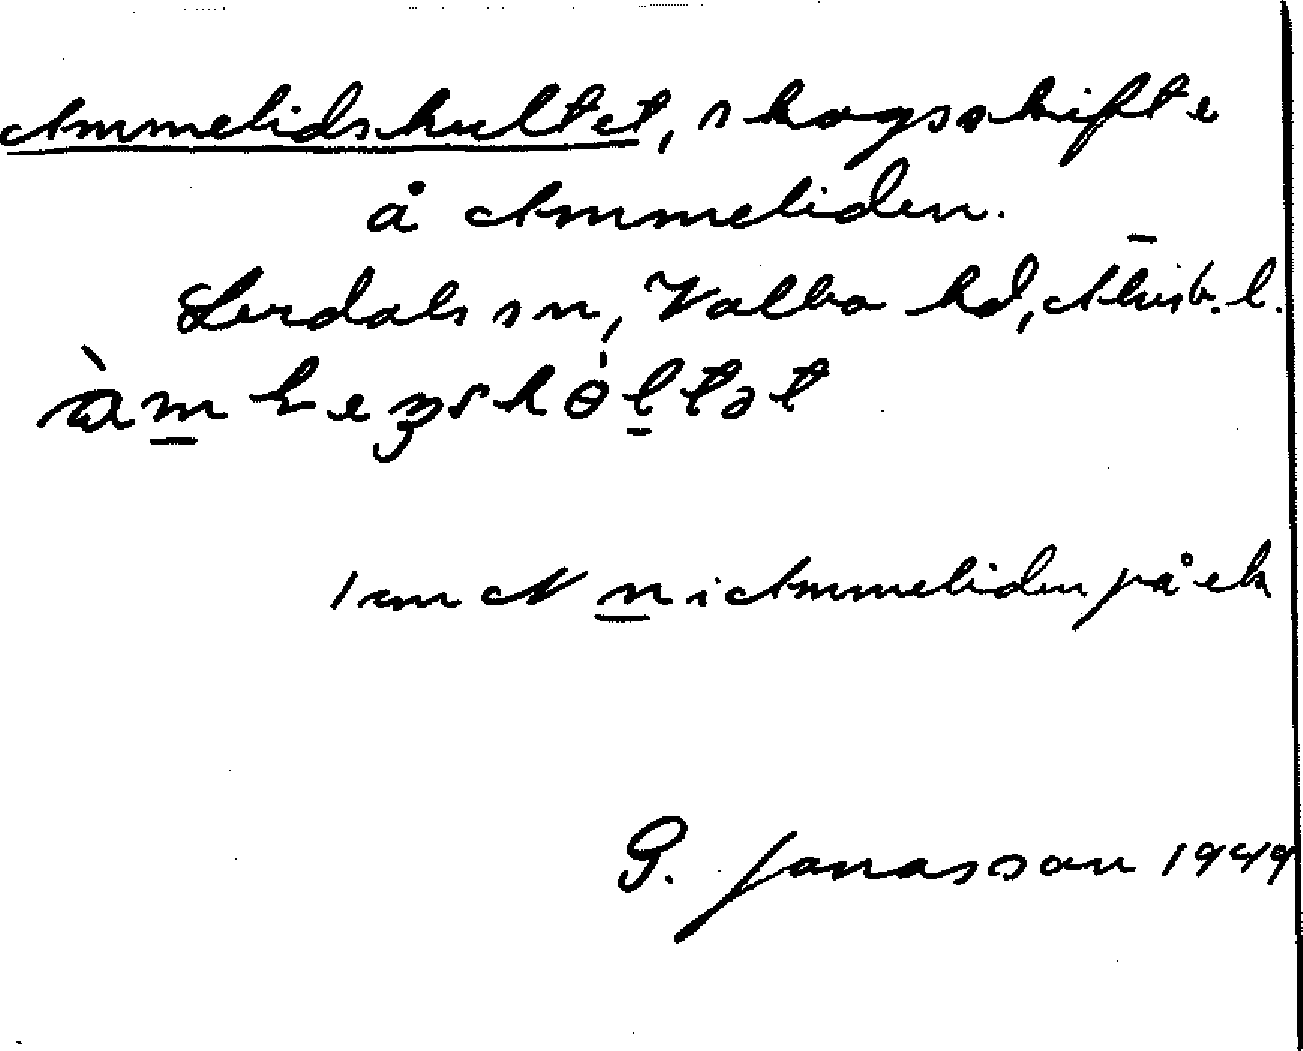 Ammelidshultet, skogsskifte
å Ammeliden.
Lerdals sn, Valbo hd, Älvsb. l.
1 cm N n i Ammeliden på ek
G. Jonasson 1949